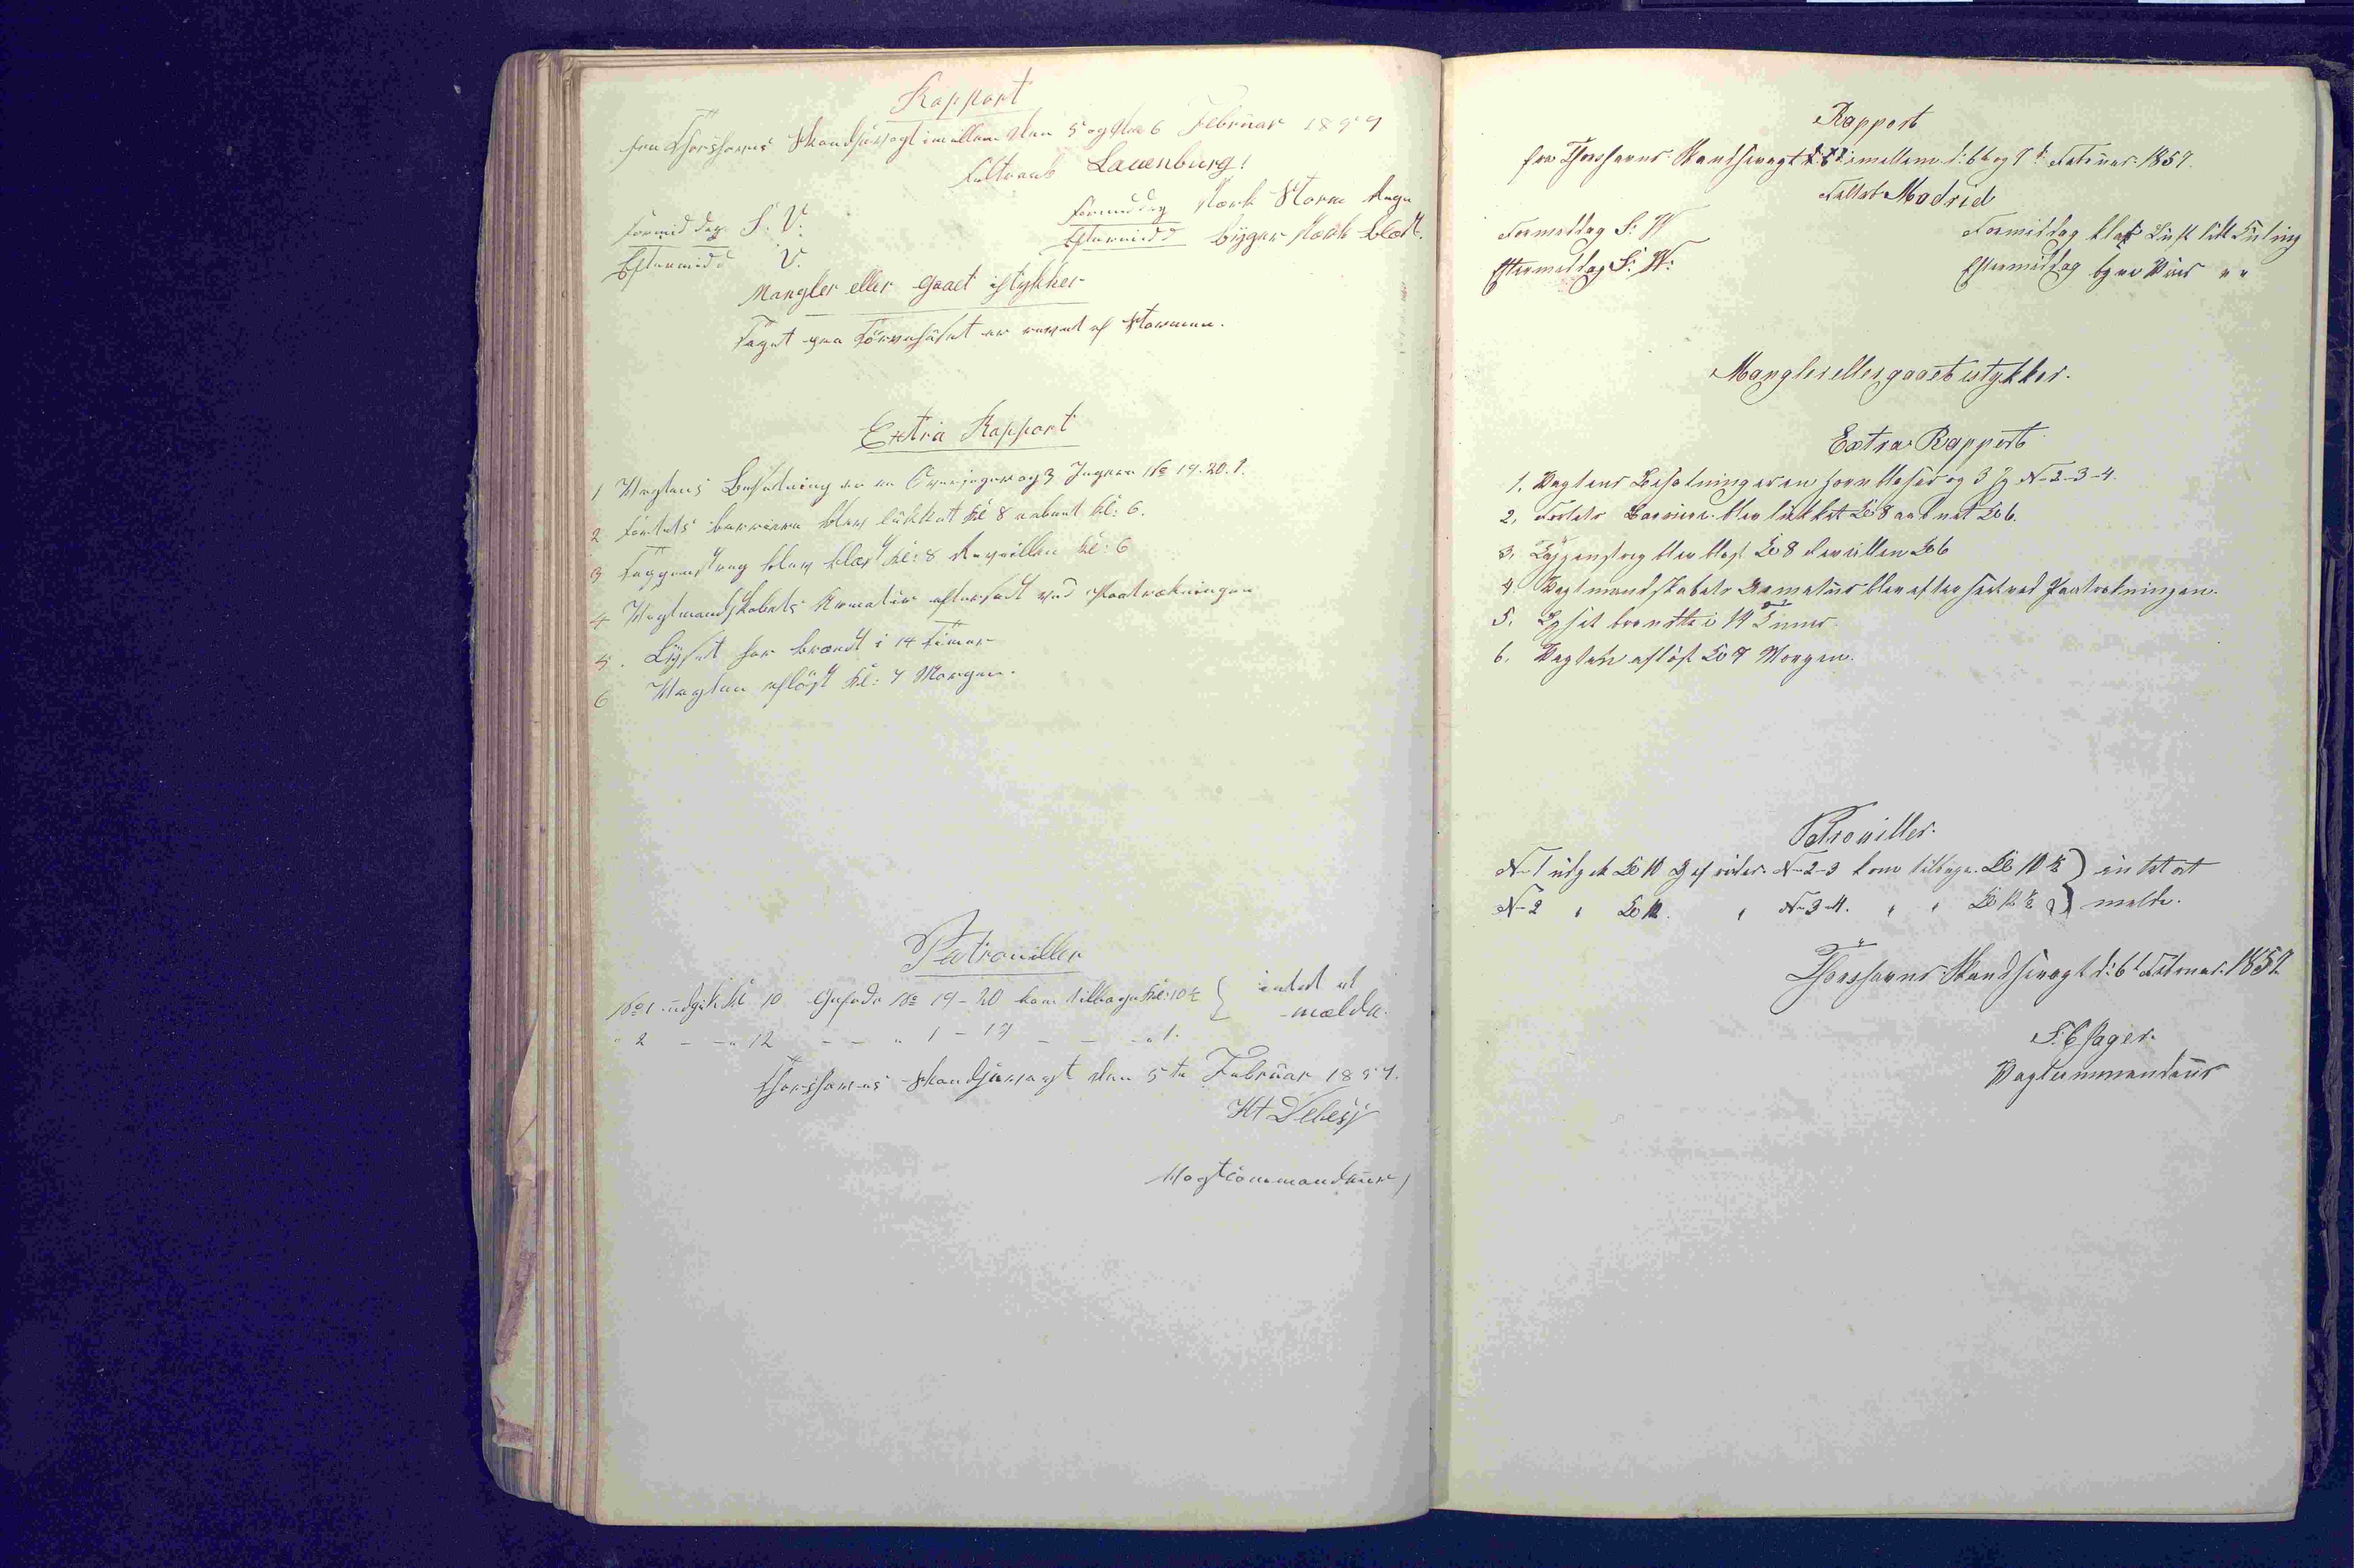 Rapport
fra Thorshavns Skandsevagt imellem den 5 og den 6 Februar 1857
Feltraab Lauenburg!
Formiddag S. V. Formiddag stærk Storm Regn
Eftermidd V. Eftermidd byger stærk blæst.
Mangler eller gaaet istykker
Taget paa Törvehuset er revet af Stormen.
Extra Rapport
1 Vagtens Besætning er en Overjæger og 3 Jægere No 19. 20. 1.
2 Fortets barriere blev lukket kl 8 aabnet kl: 6.
3 Tappenstreg blev blæst kl: 8 Reveillen kl: 6
4 Vagtmandskabets Armatur efterseet ved Paatrækningen
5. Lyset har brændt i 14 Timer
6 Vagten aflöst kl: 7 Morgen.
Patrouiller
No 1 udgik kl 10 Gefrede No 19 - 20 kom tilbage kl: 10½ } intet at
" 2 - - " 12 - - " 1 - 19 - - - " 1. melde.
Thorshavns Skandsevagt den 5te Februar 1857.
Debess
Vagtcommandeur
Rapport
fra Thorshavns Skandsevagt imellem d: 6t og 7d Februar 1857.
Feltrb Madrid
Formiddag S: W Formiddag klar Luft lidt Kuling
Eftermiddag S: W: Eftermiddag byer Veir " "
Mangler eller gaaet istykker.
Extra Rapport
1. Vagtens Besætning er en Hornblæser og 3 J N- 2-3-4.
2. Fortets Barriere blev lukket Kl 8 aabnet Kl 6.
3. Tappenstreg blev blæst Kl 8 Revillen Kl 6
4. Vagtmandskabets Armatur blev efterseet ved Paatrækningen.
5. Lyset brændte i 14 Timer.
6. Vagten aflöst Kl 7 Morgen.
Patrouiller.
N- 1 udgik Kl 10 Gefreder N- 2-3 kom tilbage Kl 10½ } intet at
N- 2 " Kl 12. " N- 3-4. " " Kl 12½ } melde.
Thorshavns Skandsevagt d: 6t Februar. 1857
Vagtcommandeur